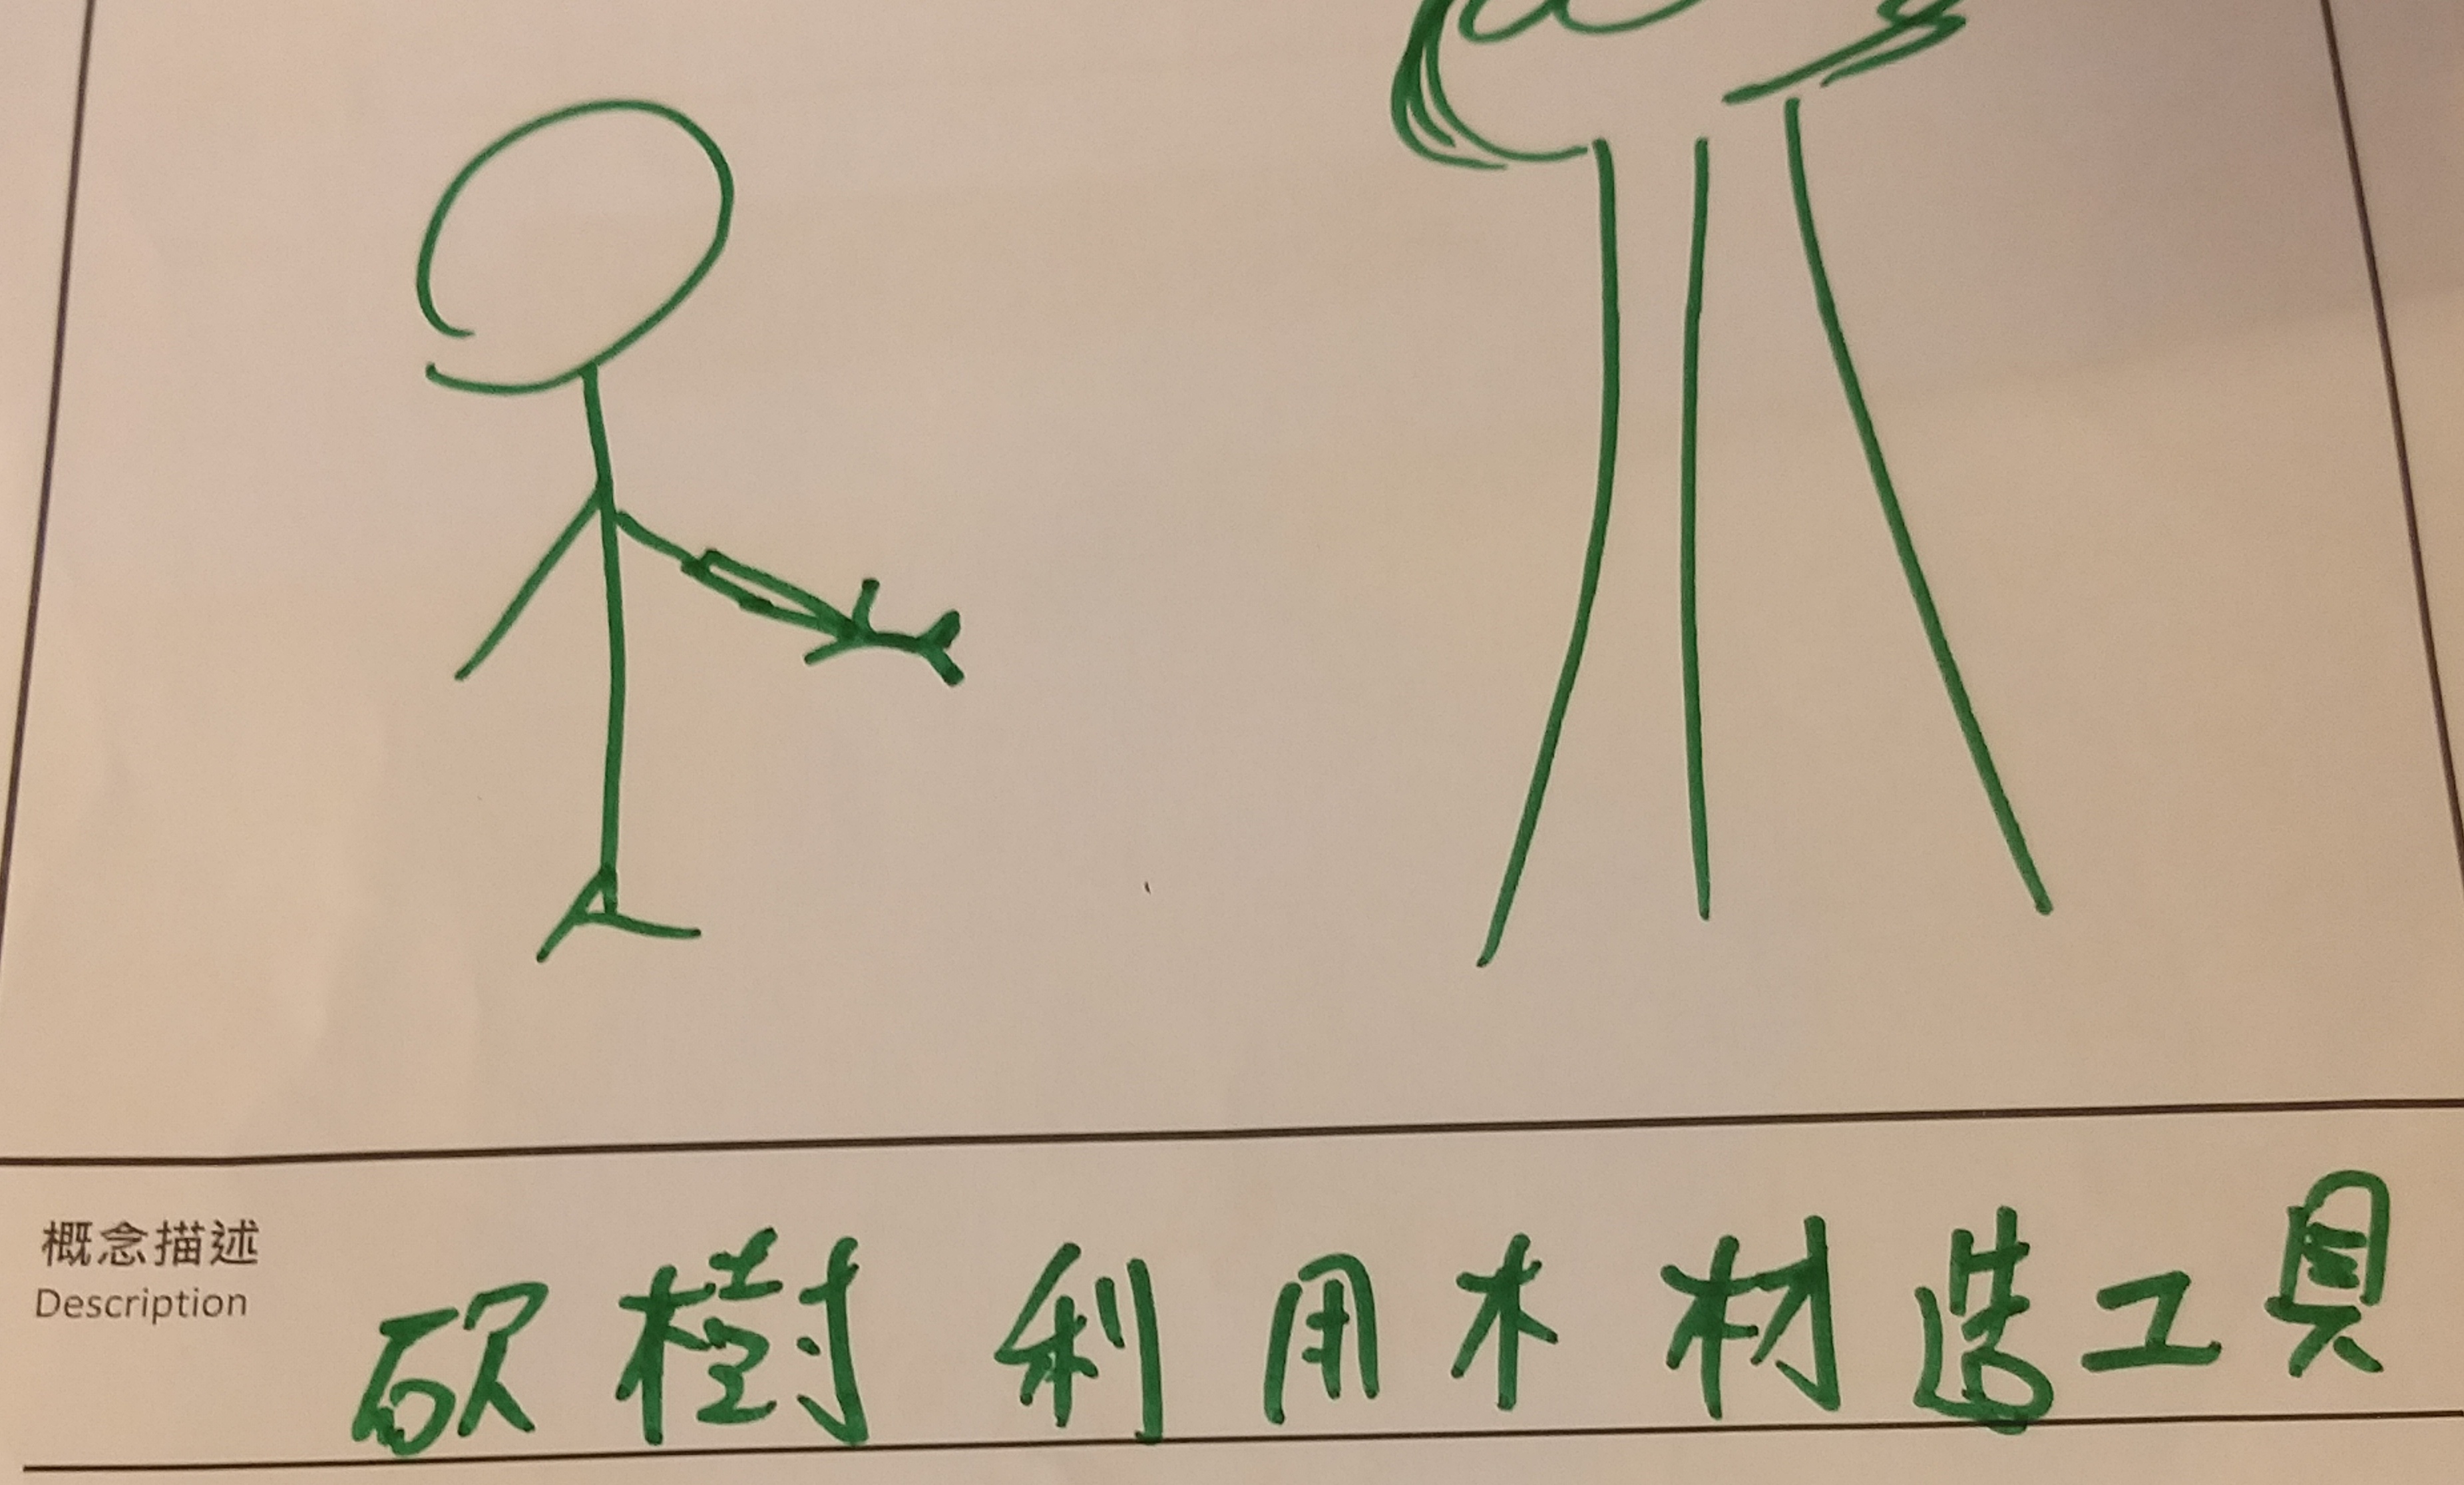 概念描述
Description
砍樹利用木材造工具